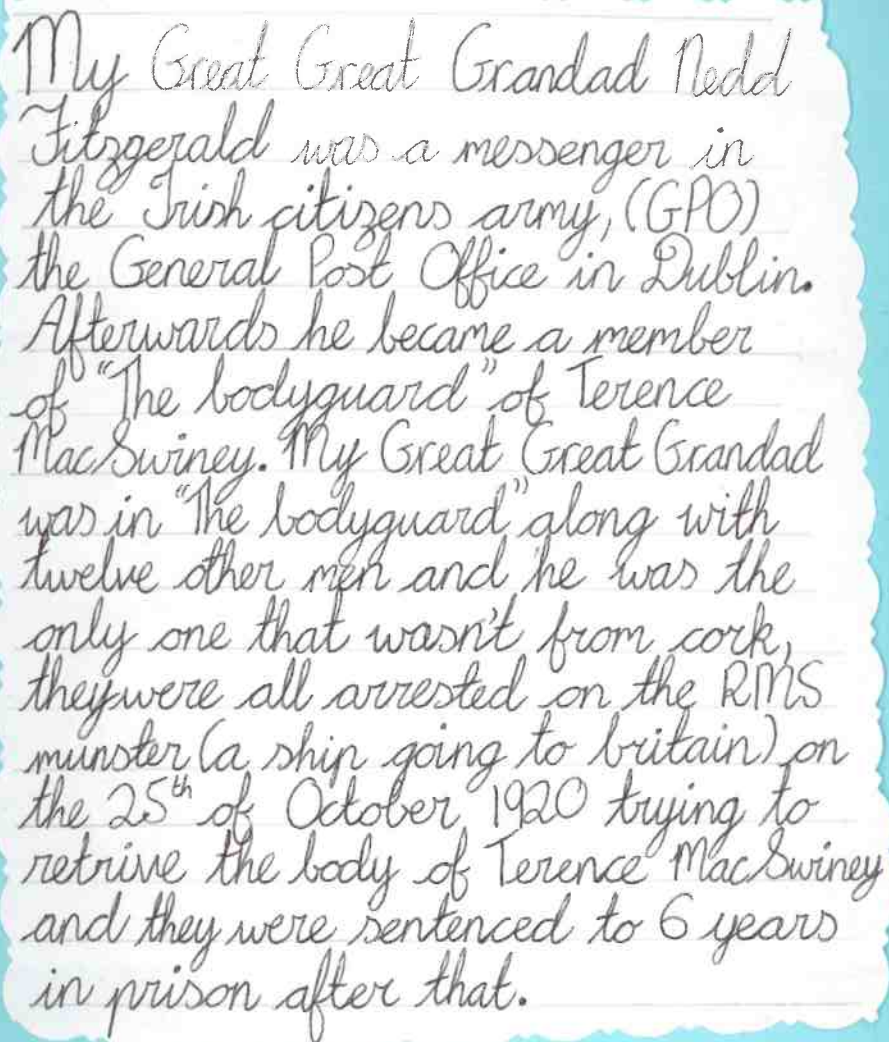 My Great Great Grandad Nedd
Fitzgerald was a messenger in
the Irish citizens army, (GPO)
the General Post Office in Dublin.
Afterwards he became a member
of "The bodyguard" of Terence
MacSwiney. My Great Great Grandad
was in "The bodyguard" along with
twelve other men and he was the
only one that wasn't from cork,
they were all arrested on the RMS
munster (a ship going to britain) on
the 25th of October 1920 trying to
retrive the body of Terence MacSwiney
and they were sentenced to 6 years
in prison after that.